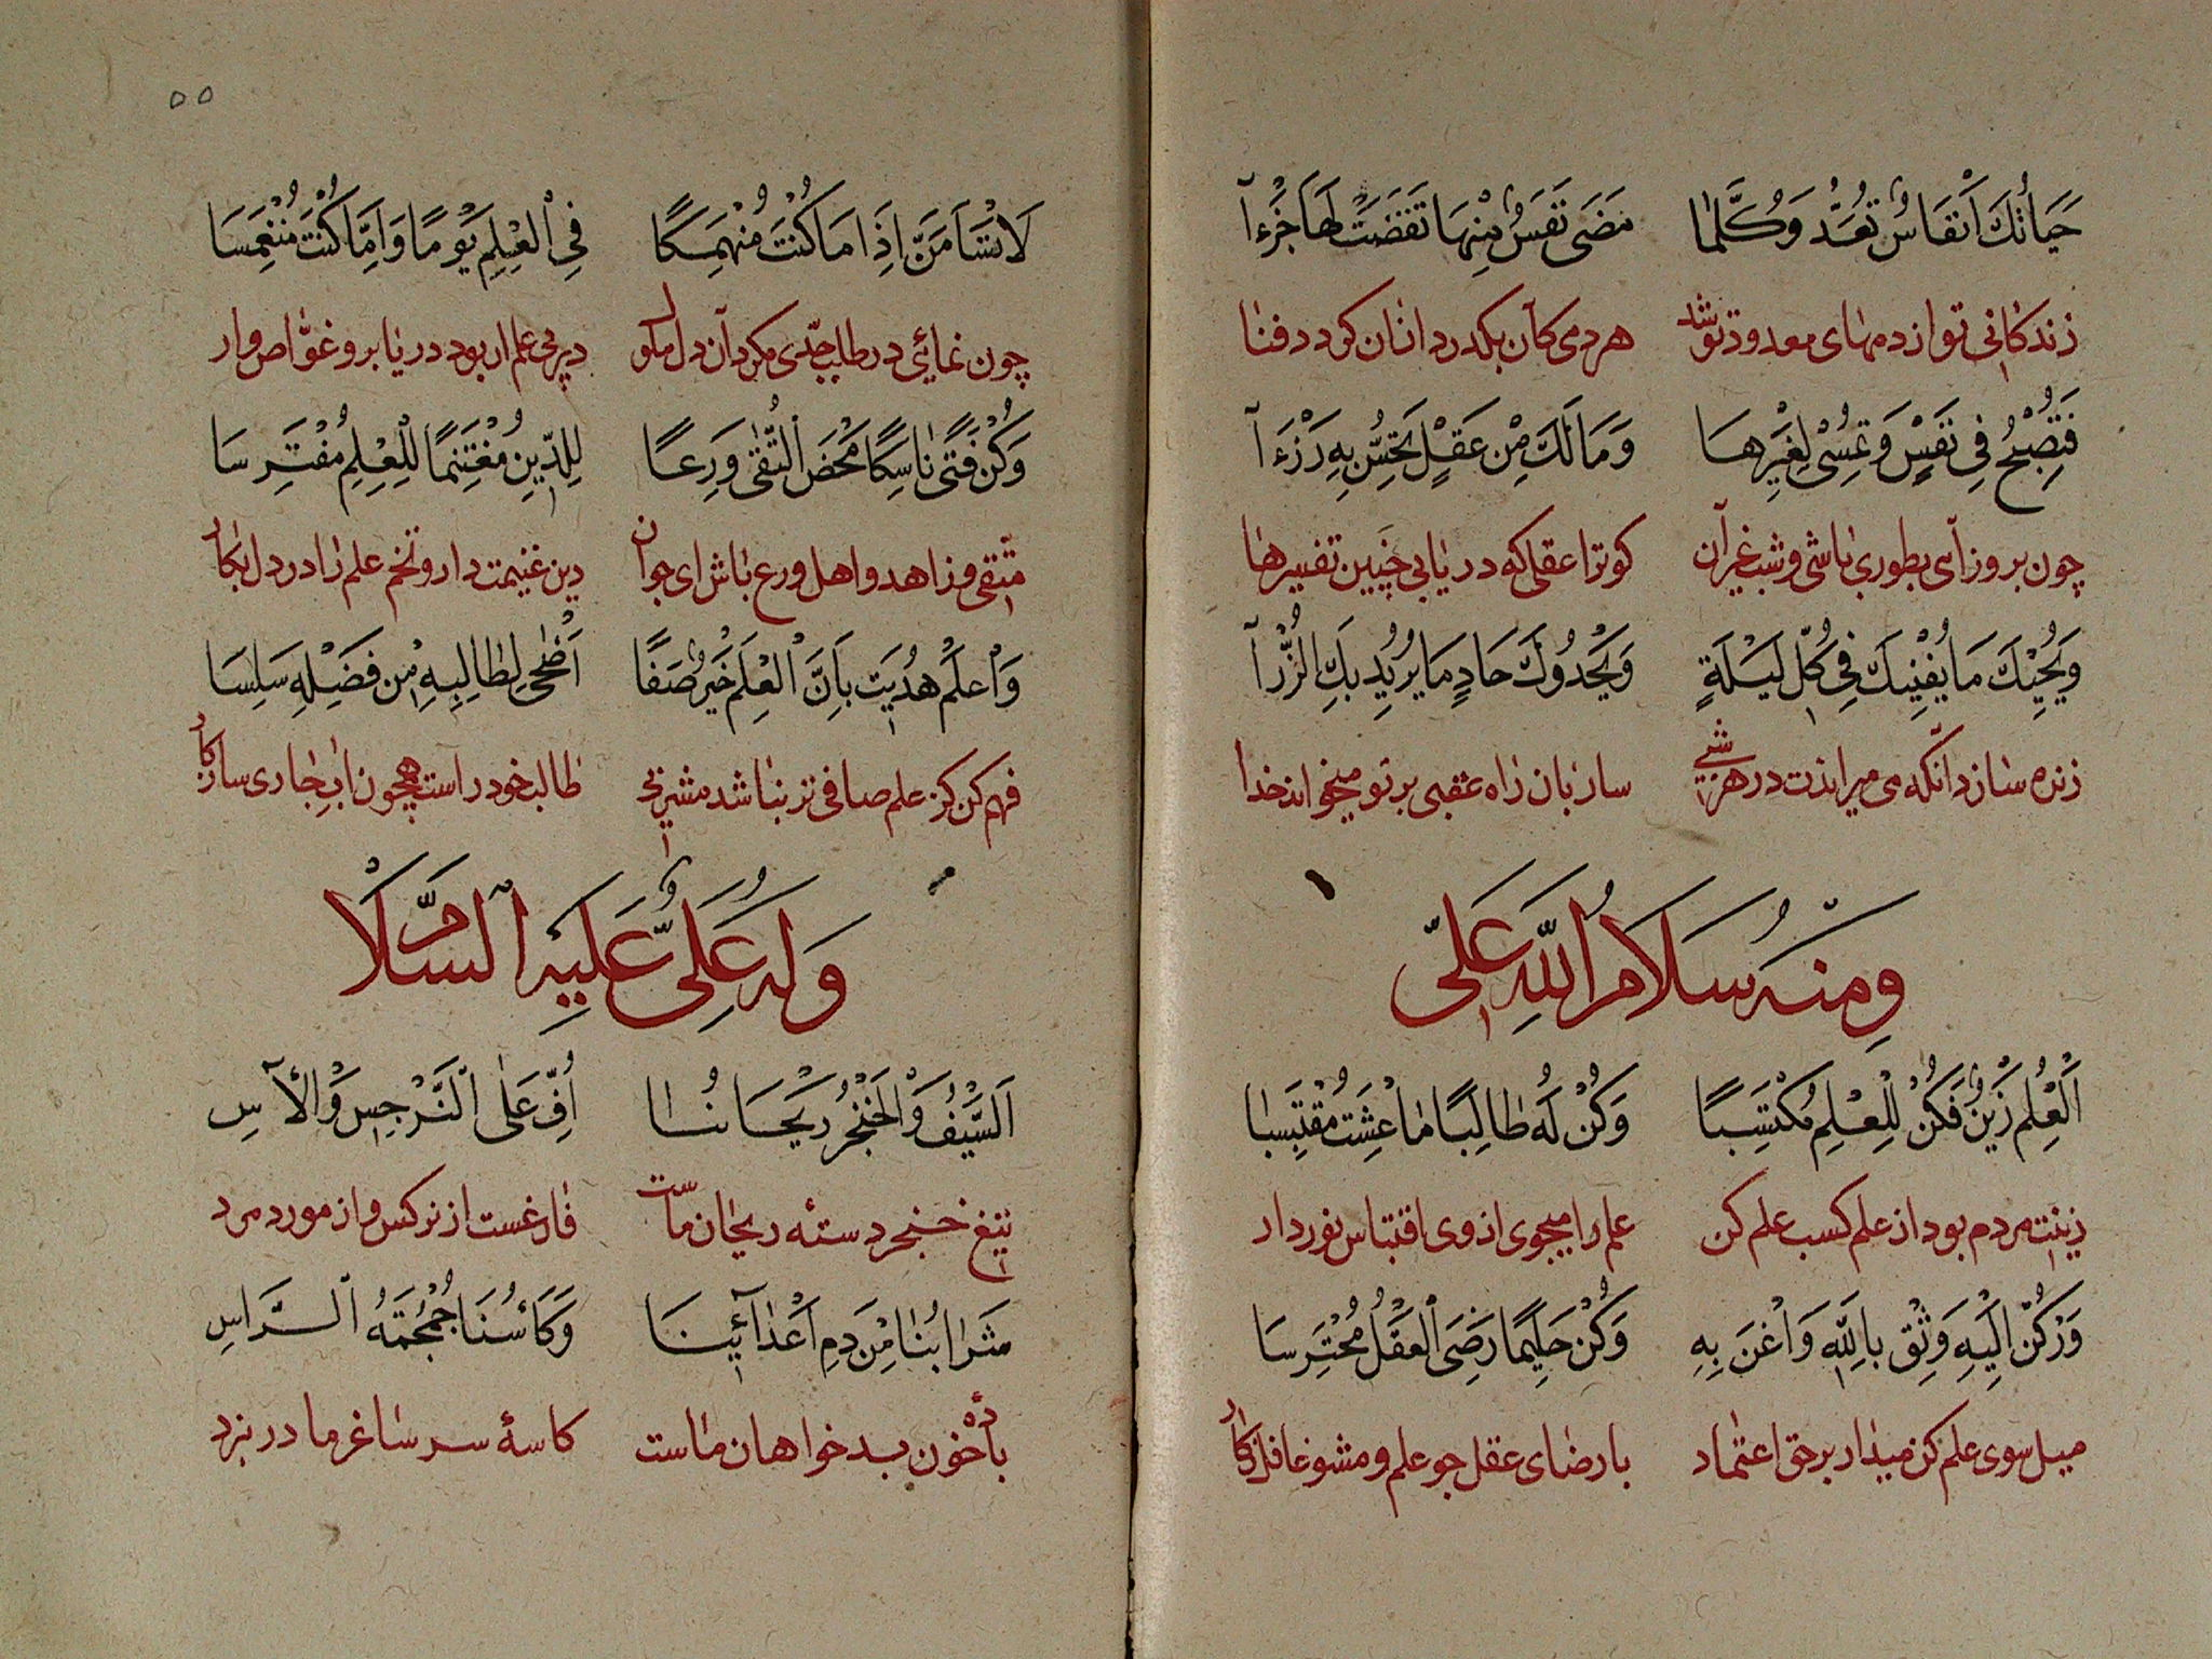 حَيَاتُكَ اَنْفَاسٌ تُعَدُّ وَكُلَّمَا مَضَى نَفَسٌ مِنْهَا نَقَصَتْ لَهَا جُزْءَآ
زندگانی تو از دمهای معدود تو شد هر دمی کان بگذرد زانان کردد فنا
فَتُصْبِحُ فِي نَفَسٍ وَتُمْسِى لِغَيْرِهَا وَمَالَكَ مِنْ عَقْلٍ تُحِسُّ بِهِ رَزْءَآ
چون بروز آسی بطوری باشی و شب غیر آن کو ترا عقلی که دریابی چنین تغییرها
وَيُحْيِيكَ مَا يُفْنِيكَ فِي كُلِّ لَيْلَةٍ وَيَحْدُوكَ حَادٍ مَا يُرِيدُ بِكَ الْزُّرْآ
زنده سازد آنکه می میراندت در هر شبی ساربان راه عقبی بر تو میخواند خدا
وَمِنْهُ سَلَامُ اللّٰهِ عَلَىّ
اَلْعِلْمُ زَيْنٌ فَكُنْ لِلْعِلْمِ مُكْتَسِبًا وَكُنْ لَهُ طَالِبًا مَا عِشْتَ مُقْتَبِسَا
زینت مردم بود از علم کسب علم کن علم را میجوی از وی اقتباس نور دار
وَرْكُنْ اِلَيْهِ وَثِقْ بِاللّٰهِ وَاغْنَ بِهِ وَكُنْ حَلِيمًا رَضِىَ الْعَقْلِ مُحْتَرِسَا
میل سوی علم کن میدار بر حق اعتماد بارضای عقل جو علم و مشو غافل ز کار
٥٥
لَا تَسْأَمَنَّ اِذَا مَا كُنْتَ مُنْهَمِكًا فِي الْعِلْمِ يَوْمًا وَاِمَّا كُنْتَ مُنْغَمِسَا
چون نمائی در طلب جدی مکردان دل ملول در یمی علم ار بود در یابرو غواص وار
وَكُنْ فَتًى نَاسِكًا مَحْضَ التُّقٰى وَرِعًا لِلدِّينِ مُغْتَنِمًا لِلْعِلْمِ مُفْتَرِسَا
متقی و زاهد و اهل ورع باش ای جوان دین غنیمت دار و تخم علم را در دل بکار
وَاعْلَمْ هُدِيتَ بِاَنَّ الْعِلْمَ خَيْرُ صَفًا اَضْحَى لِطَالِبِهِ مِنْ فَضْلِهِ سَلِسَا
فهم کن کز علم صافی تر نباشد مشربی طالب خود راست همچون اب جاری سازکار
وَلَهُ عَلِىٌّ عَلَيْهِ السَّلَامْ
اَلسَّيْفُ وَالْخَنْجَرُ رَيْحَانُنَا اُفٍّ عَلَى النَّرْجِسِ وَالْآسِ
تیغ خنجر دستهٔ ریحان ماست فارغست از نرکس و از مورد مرد
شَرَابُنَا مِنْ دَمِ اَعْدَآئِينَا وَكَأْسُنَا جُمْجُمَةُ الرَّاسِ
بادهٔ خون بدخواهان ماست کاسهٔ سر ساغر ما در نبرد